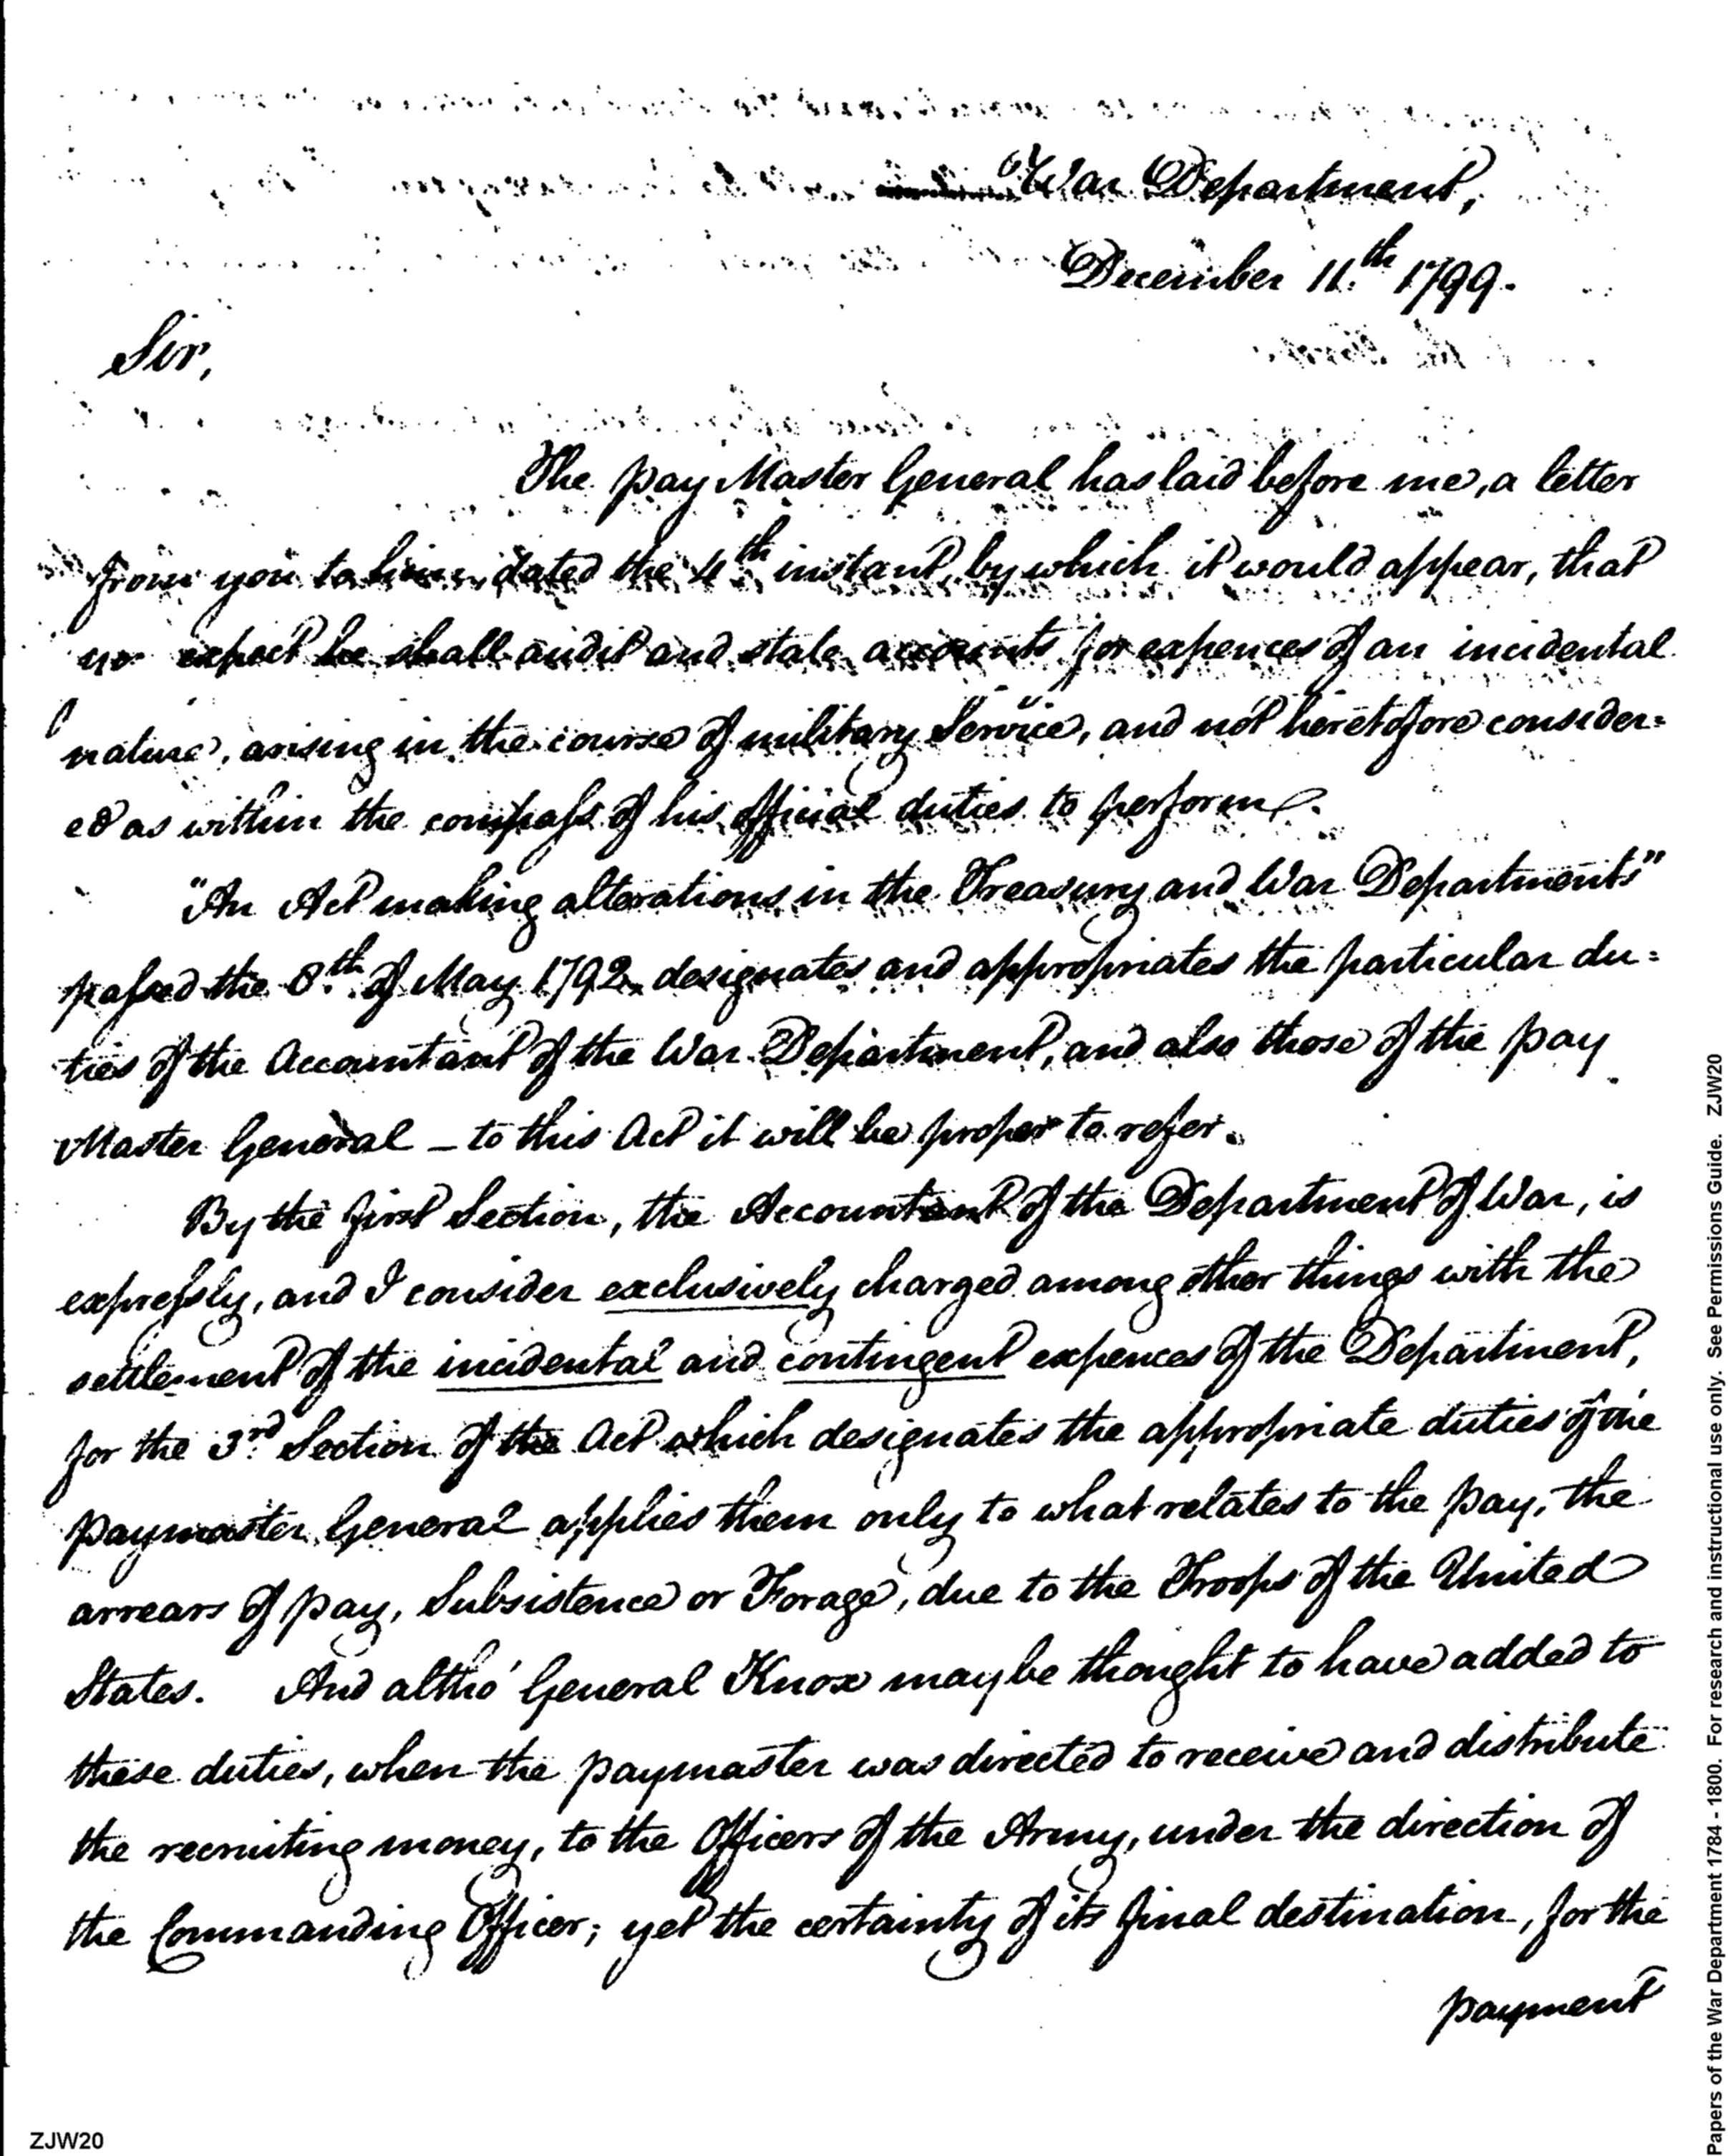 War Department,
December 11.th 1799.
Sir,
The pay Master General has laid before me, a letter
from you to him, dated the 4th instant, by which it would appear, that
expect he shall audit and state accounts for expences of an incidental
nature, arising in the course of military Service, and not heretofore consider=
ed as within the compass of his official duties to perform.
"An Act making alterations in the Treasury and War Departments"
passed the 8.th of May 1792, designates and appropriates the particular du=
ties of the Accountant of the War Department, and also those of the pay
Master General – to this Act it will be proper to refer.
By the first Section, the Accountant of the Department of War, is
expressly, and I consider exclusively charged among other things with the
settlement of the incidental and contingent expences of the Department,
for the 3.rd Section of the Act which designates the appropriate duties of the
paymaster General applies them only to what relates to the pay, the
arrears of pay, Subsistence or Forage, due to the Troops of the United
States. And altho' General Knox may be thought to have added to
these duties, when the paymaster was directed to receive and distribute
the recruiting money, to the Officers of the Army, under the direction of
the Commanding Officer; yet the certainty of its final destination, for the
payment
ZJW20
Papers of the War Department 1784 - 1800. For research and instructional use only. See Permissions Guide. ZJW20